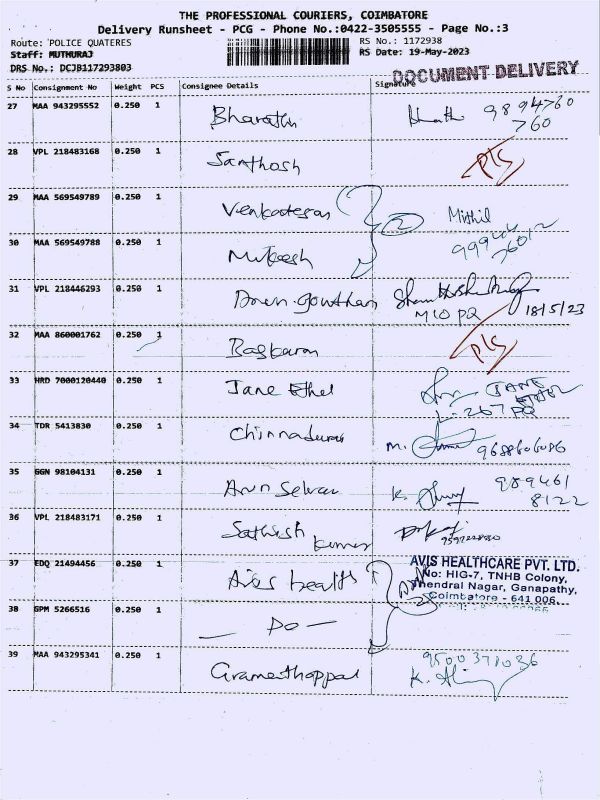 THE PROFESSIONAL COURIERS, COIMBATORE
Delivery Runsheet - PCG - Phone No.:0422-3505555 - Page No.:3
Route: POLICE QUATERES
RS No.: 1172938
Staff: MUTHURAJ
RS Date: 19-May-2023
DRS No.: DCJB117293803
DOCUMENT DELIVERY
S No Consignment No Weight PCS Consignee Details Signature
27 MAA 943295552 0.250 1 Bharathi 9894760
760
28 VPL 218483168 0.250 1 Santhosh pls
29 MAA 569549789 0.250 1 Venkatesan 2 Mithil
30 MAA 569549788 0.250 1 Mukesh
31 VPL 218446293 0.250 1 Arun gowthan
M10 PQ 18/5/23
32 MAA 860001762 0.250 1 Baskaran pls
33 HRD 7000120440 0.250 1 Jane Ethel JANE
267 PQ
34 TDR 5413830 0.250 1 Chinnadurai M.
35 GGN 98104131 0.250 1 Arun Selvan K. 989461
8122
36 VPL 218483171 0.250 1 Sathish Kumar
37 EDQ 21494456 0.250 1 Aives health AVIS HEALTHCARE PVT. LTD.
No: HIG-7, TNHB Colony,
Nagar, Ganapathy,
Coimbatore - 641 006.
38 GPM 5266516 0.250 1 — Do —
39 MAA 943295341 0.250 1 Gramenthoppal 9500371036
K.